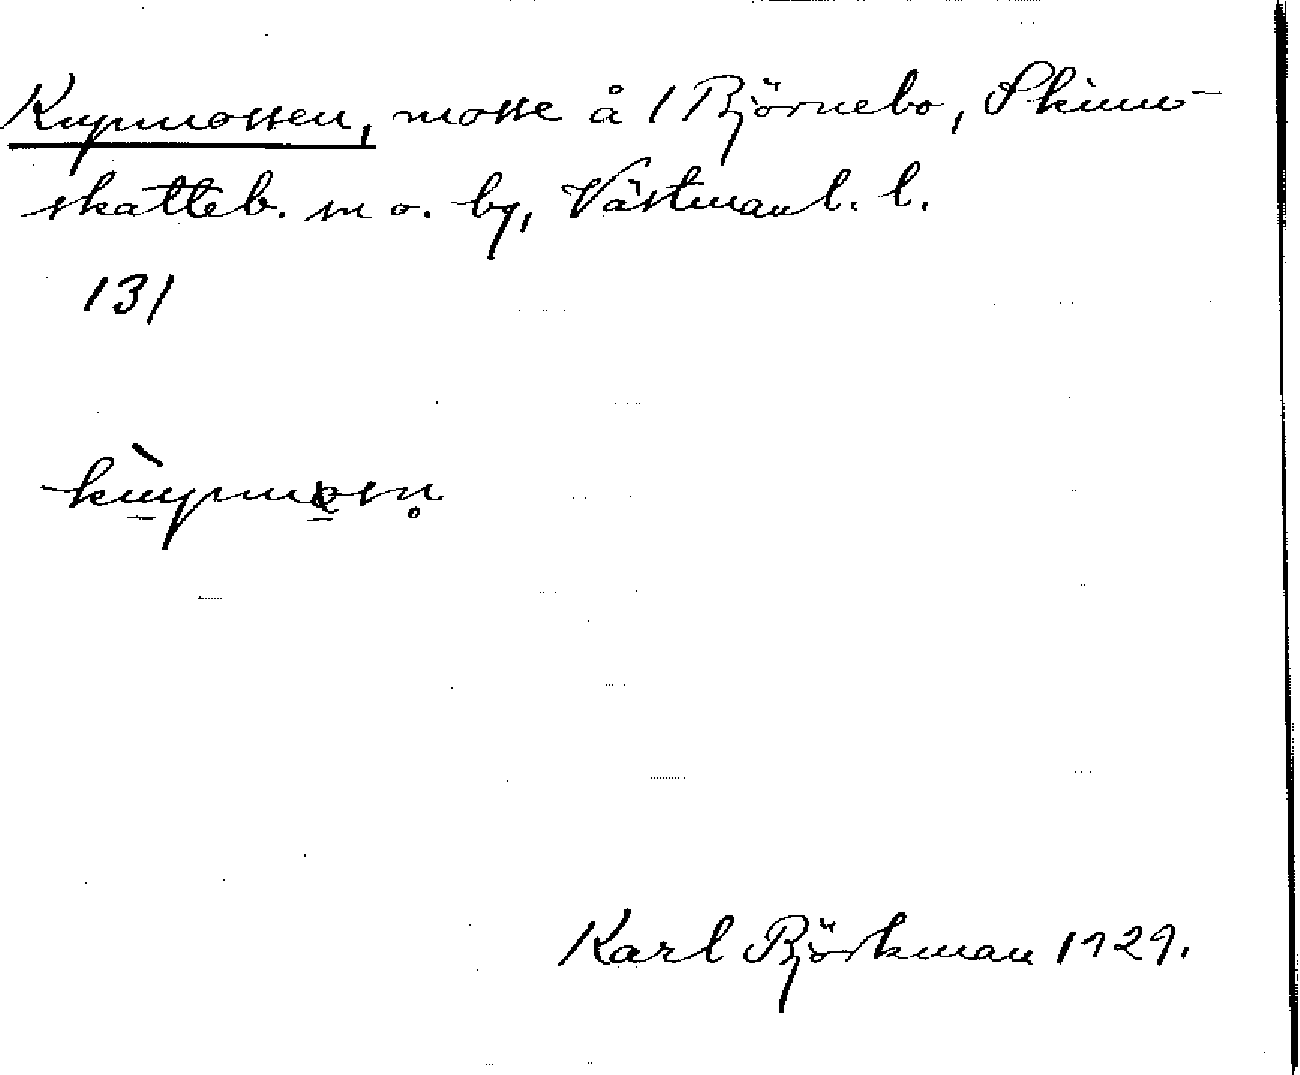 Knypmossen, mosse å 1 Björnebo, Skinn-
skatteb. sn o. bg, Västmanl. l.
131
Karl Björkman 1929.